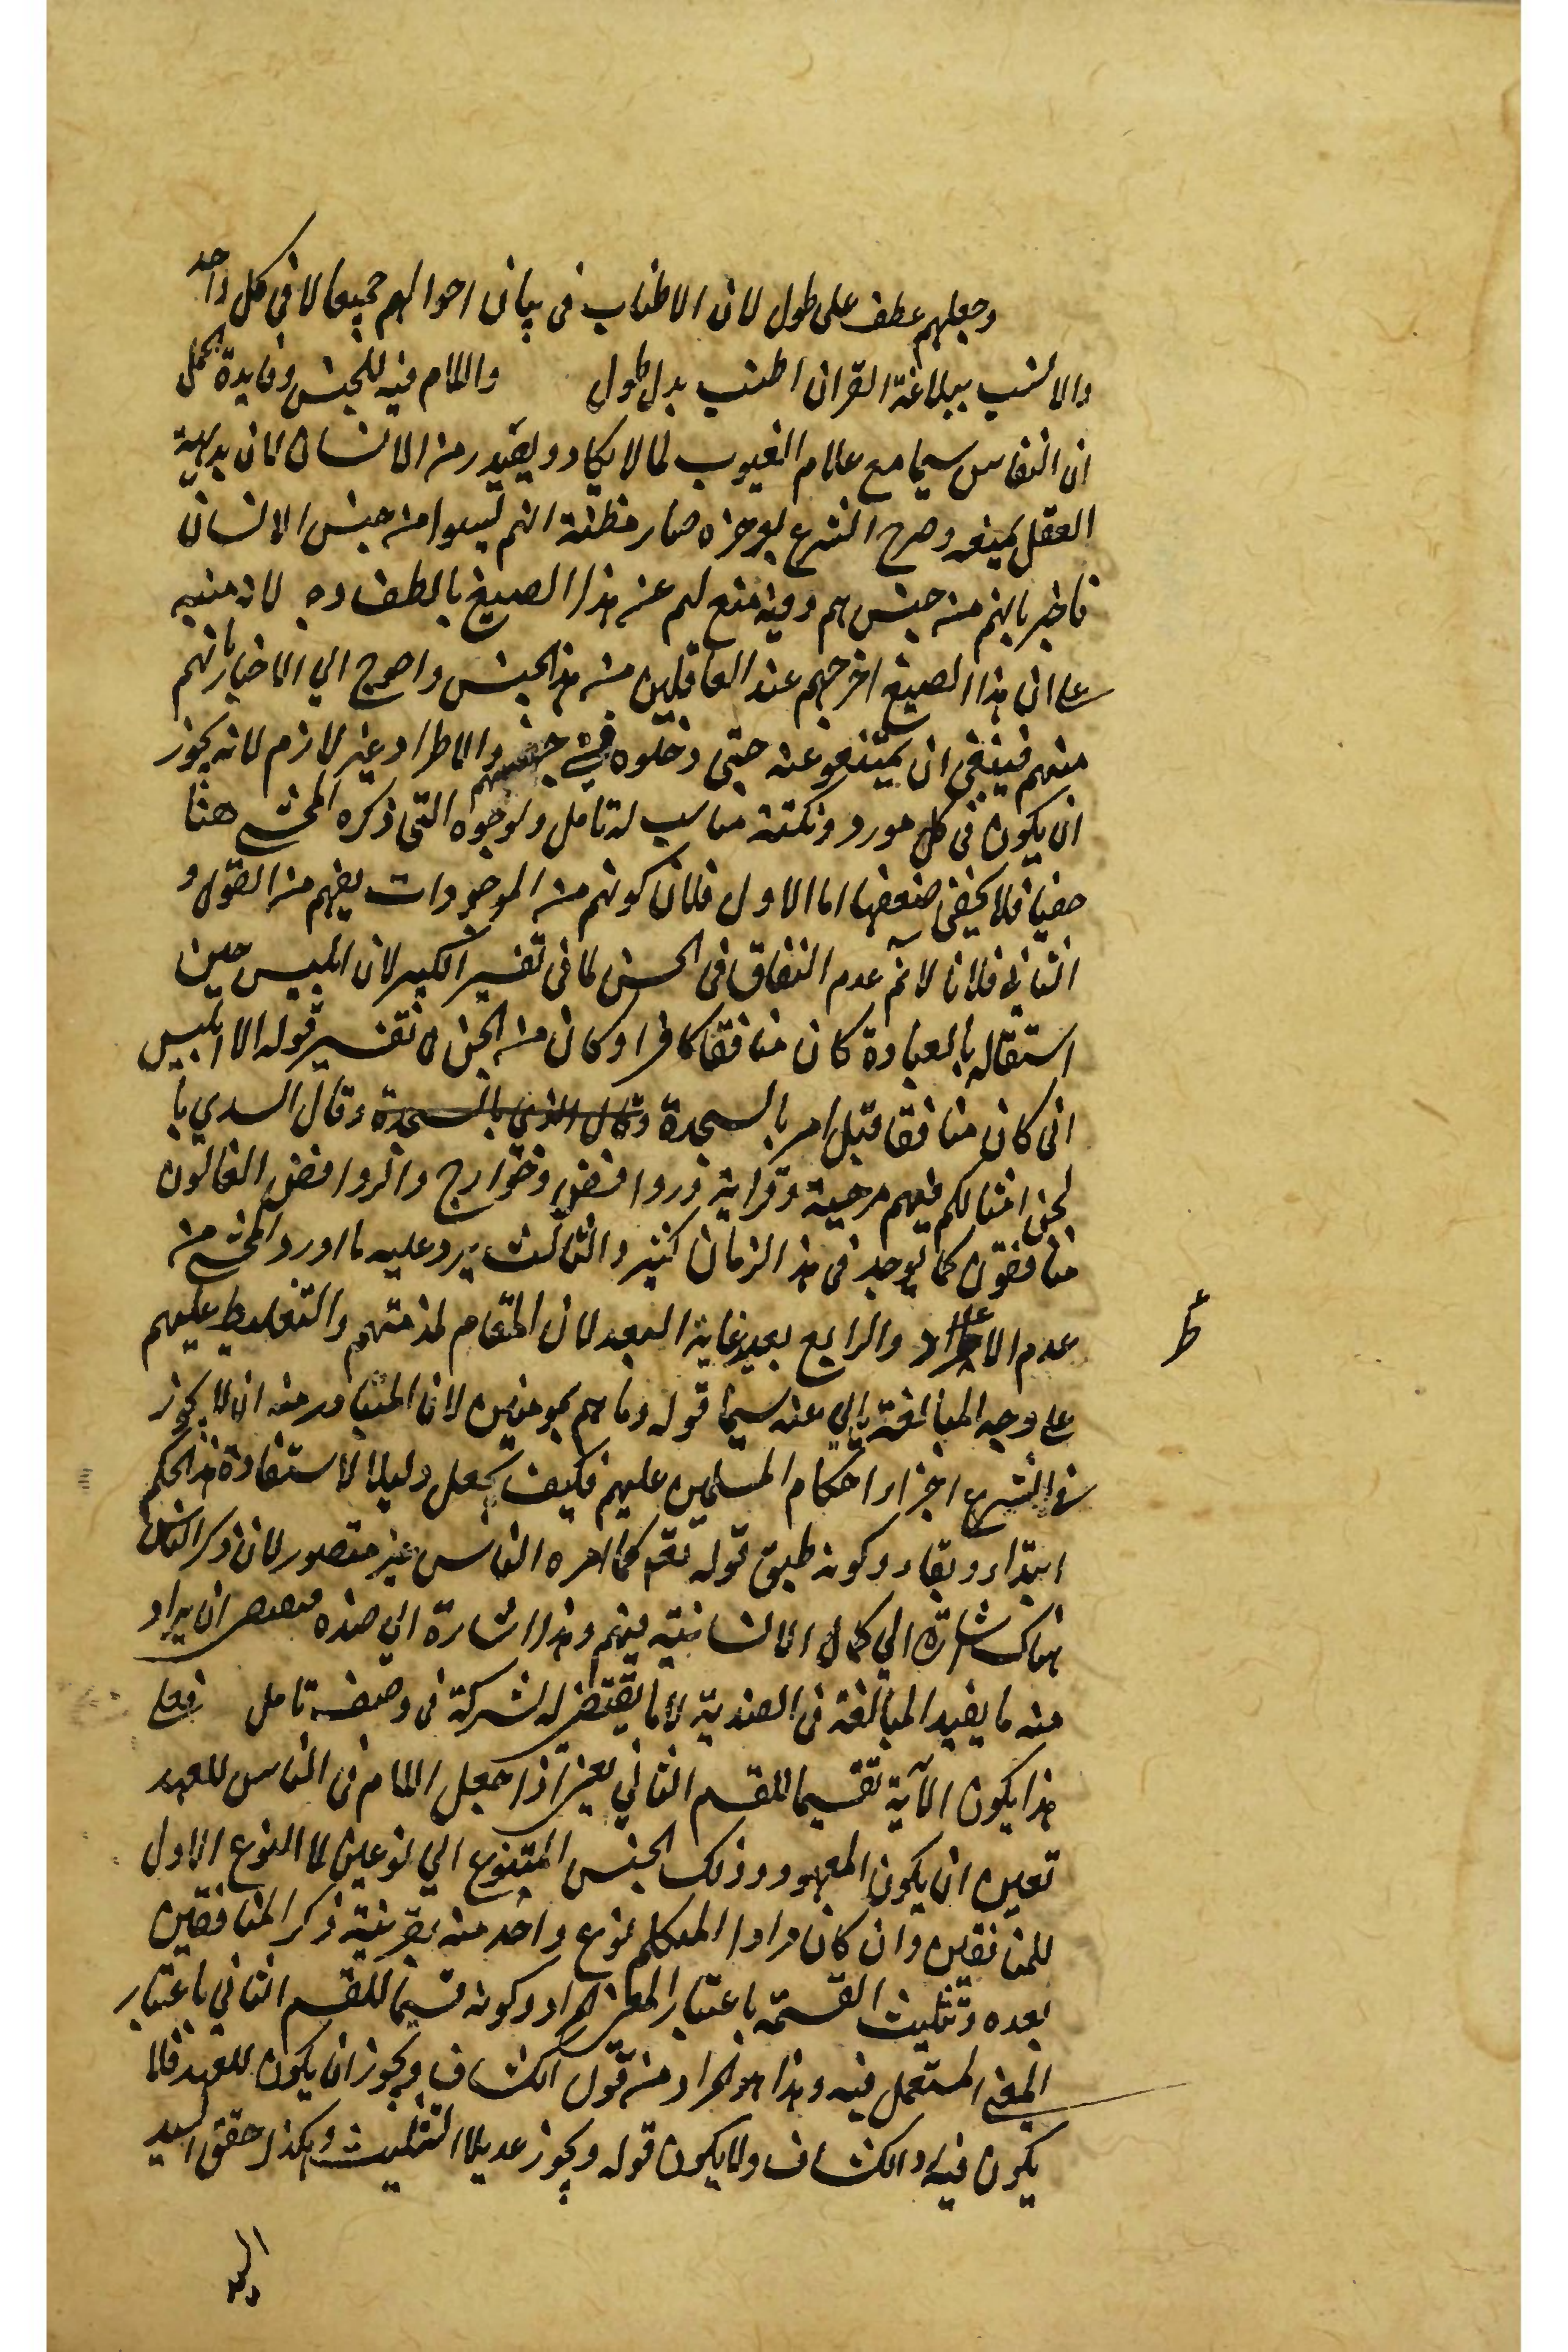 وجعلهم عطف على طول لان الاطناب فى بيان احوالهم جميعا لا فى كل واحد
والانسب ببلاغة القران اطنب بدل طول واللام فيه للجنس وفايدة الحمل
ان النفاق سيما مع علام الغيوب لما لا يكاد ويصدر من الانسان لان بديهية
العقل يمنعه وصرح الشرع بوجره صار مظنة انهم ليسوا من جنس الانسان
فاخبر بانهم من جنسهم وفيه منع لهم عن هذا الصنيع بالطف وجه لانه منبه
على ان هذا الصنيع اخرجهم عند العاقلين من هذا الجنس واحوج الى الاخبار بانهم
منهم فينبغى ان يمتنعو عنه حتى دخلوه فى جنسهم والاطراد غير لازم لانه يجوز
ان يكون فى كل مورد ونكتة مناسب له تامل ولوجوه التى ذكره المحشى هنا
خفيا فلا يخفى ضعفها اما الاول فلان كونهم من الموجودات يفهم من القول و
الثانى فلانا لانم عدم النفاق فى الجن لما فى تفسير الكبير لان ابليس حين
استقاله بالعبادة كان منافقا كافرا وكان من الجن تفسير قوله الا ابليس
انى كان منافقا قبل امر بالسجدة وقال السدي با
لجن امثالكم فيهم مرجية وقدرية وروافض وخوارج والروافض الغالون
منافقون كما يوجد فى هذا الزمان كثير والثالث يرد عليه ما اورد المحشى من
عدم الاطراد والرابع بعيد غاية البعد لان المقام لمذمتهم والتغليظ عليهم
على وجه المبالغة يابي عنه سيما قوله وما هم بمومنين لان المتبادر منه ان لا يجوز
فى الشرع اجراء احكام المسلمين عليهم فكيف يجعل دليلا لاستفادة هذا الحكم
ابتداء وبقاء وكونه طبق قوله تعم كما امره الناس غير متصور لان ذكر الناس
هناك اشارة الي كمال الانسانية فيهم وهذا اشارة الي ضده فيصح ان يراد
منه ما يفيد المبالغة فى الضدية لا ما يقتضى له شركة فى وصف تامل فعلى
هذا يكون الآية تقسيما للقسم الثاني يعنى اذا جعل اللام فى الناس للعهد
تعين ان يكون المعهود وذلك الجنس المتنوع الي نوعين لا النوع الاول
للمنافقين وان كان مراد المتكلم نوع واحد منه بقرينة ذكر المنافقين
بعده وتثليث القسمة باعتبار المعنى المراد وكونه قسيما للقسم الثاني باعتبار
المعنى المستعمل فيه وهذا هو المراد من قول الكشاف ويجوز ان يكون للعهد فلا
يكون فيه رد الكشاف ولا يكون قوله ويجوز عديلا التثليث وهكذا حقق السيد